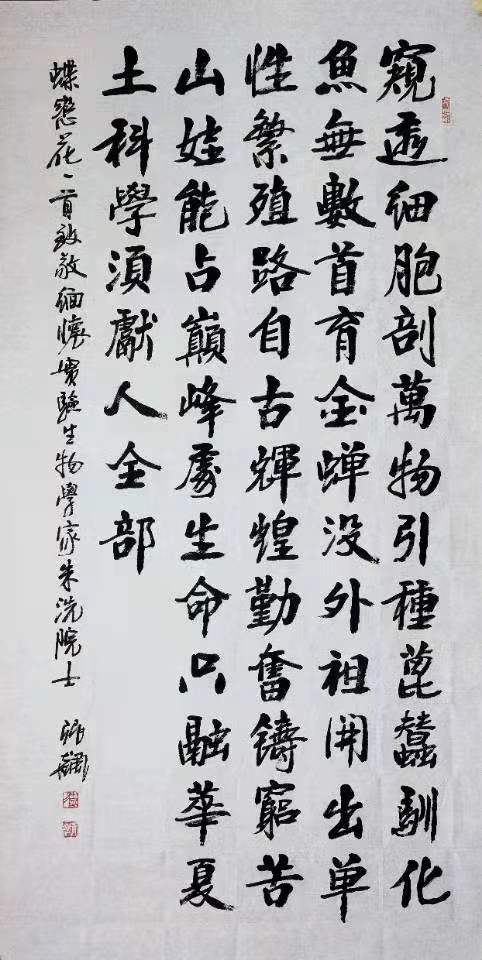 窺透细胞剖萬物引種蓖蠶馴化
魚無數首育金蟬没外祖開出单
性繁殖路自古輝煌勤奮鑄窮苦
山娃能占巔峰處生命只融華夏
土科學須獻人全部
蝶戀花一首致敬缅懷實驗生物學家朱洗院士